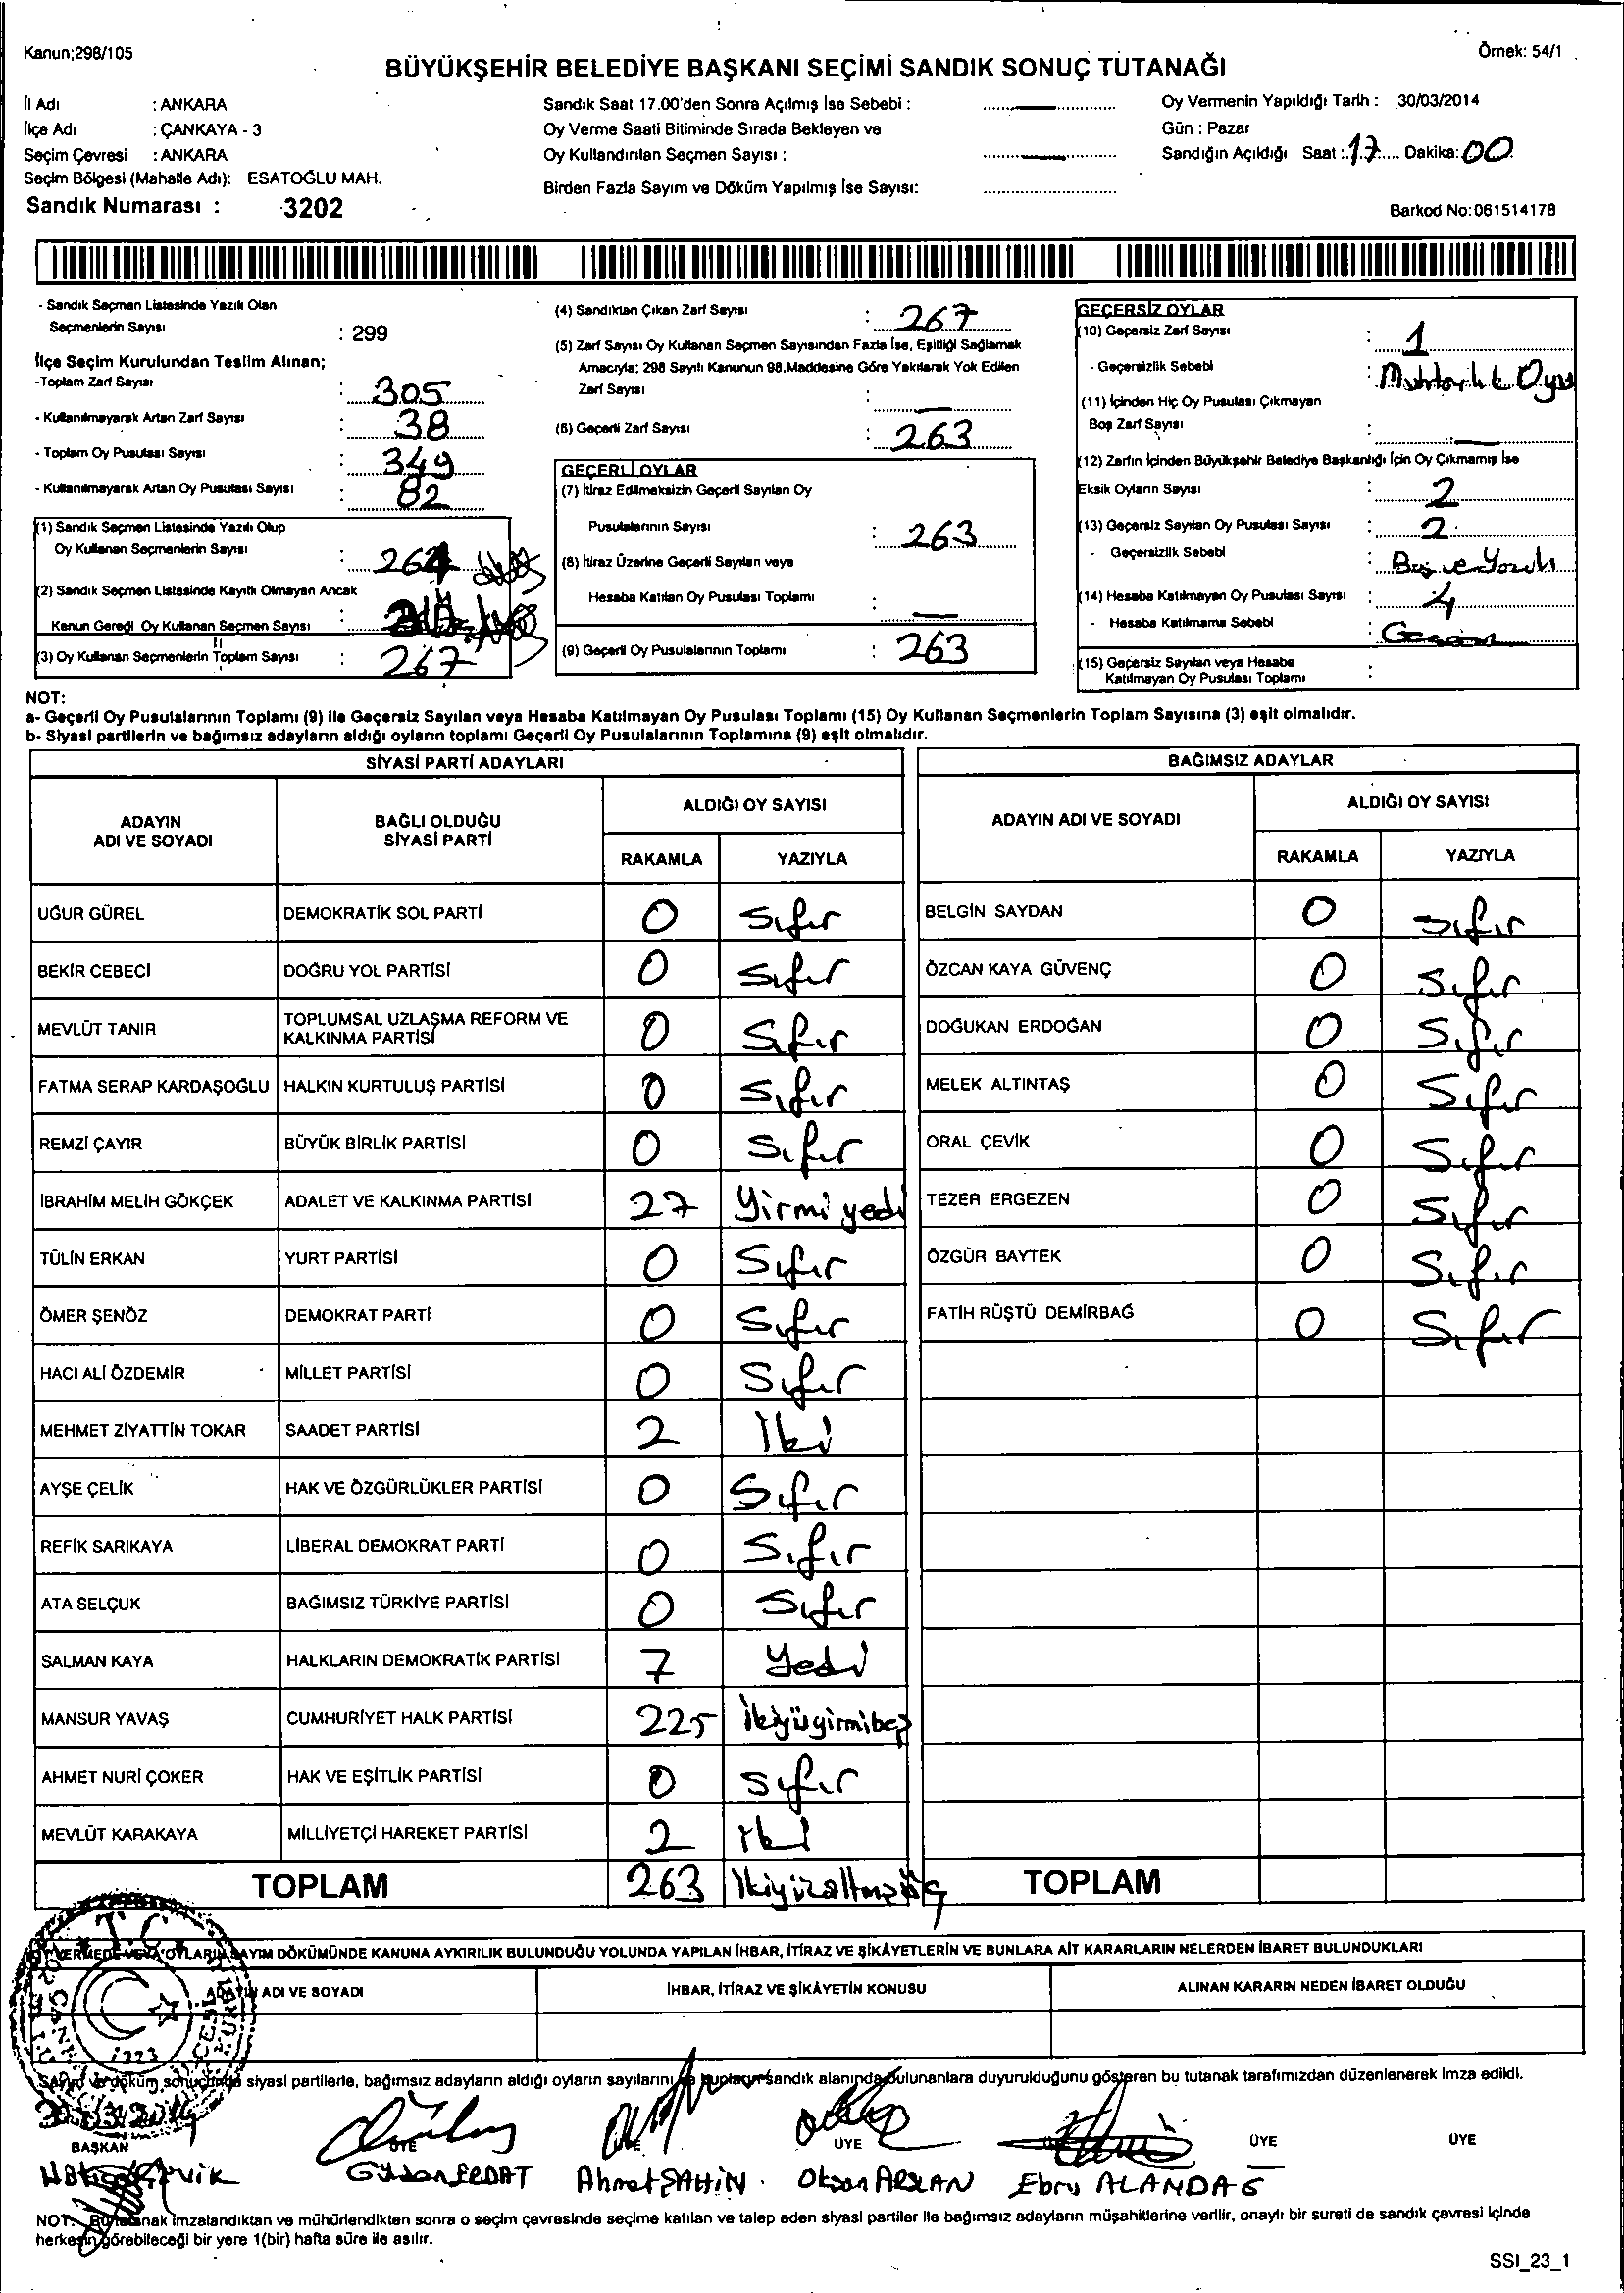 Kanun;298/105
Örnek: 54/1
BÜYÜKŞEHİR BELEDİYE BAŞKANI SEÇİMİ SANDIK SONUÇ TUTANAĞI
İl Adı : ANKARA
İlçe Adı : ÇANKAYA - 3
Seçim Çevresi : ANKARA
Seçim Bölgesi (Mahalle Adı): ESATOĞLU MAH.
Sandık Numarası : 3202
Sandık Saat 17.00'den Sonra Açılmış İse Sebebi :
Oy Verme Saati Bitiminde Sırada Bekleyen ve
Oy Kullandırılan Seçmen Sayısı :
Birden Fazla Sayım ve Döküm Yapılmış İse Sayısı:
Oy Vermenin Yapıldığı Tarih : 30/03/2014
Gün : Pazar
Sandığın Açıldığı Saat : 17 Dakika: 00
Barkod No:061514178
- Sandık Seçmen Listesinde Yazılı Olan
Seçmenlerin Sayısı : 299
İlçe Seçim Kurulundan Teslim Alınan;
-Toplam Zarf Sayısı : 305
- Kullanılmayarak Artan Zarf Sayısı : 38
- Toplam Oy Pusulası Sayısı : 349
- Kullanılmayarak Artan Oy Pusulası Sayısı : 82
(1) Sandık Seçmen Listesinde Yazılı Olup
Oy Kullanan Seçmenlerin Sayısı : 264
(2) Sandık Seçmen Listesinde Kayıtlı Olmayan Ancak
Kanun Gereği Oy Kullanan Seçmen Sayısı :
(3) Oy Kullanan Seçmenlerin Toplam Sayısı : 267
(4) Sandıktan Çıkan Zarf Sayısı : 267
(5) Zarf Sayısı Oy Kullanan Seçmen Sayısından Fazla İse, Eşitliği Sağlamak
Amacıyla; 298 Sayılı Kanunun 98.Maddesine Göre Yakılarak Yok Edilen
Zarf Sayısı :
(6) Geçerli Zarf Sayısı : 263
GEÇERLİ OYLAR
(7) İtiraz Edilmeksizin Geçerli Sayılan Oy
Pusulalarının Sayısı : 263
(8) İtiraz Üzerine Geçerli Sayılan veya
Hesaba Katılan Oy Pusulası Toplamı :
(9) Geçerli Oy Pusulalarının Toplamı : 263
GEÇERSİZ OYLAR
(10) Geçersiz Zarf Sayısı : 1
- Geçersizlik Sebebi : Muhtarlık Oyu
(11) İçinden Hiç Oy Pusulası Çıkmayan
Boş Zarf Sayısı :
(12) Zarfın İçinden Büyükşehir Belediye Başkanlığı İçin Oy Çıkmamış İse
Eksik Oyların Sayısı : 2
(13) Geçersiz Sayılan Oy Pusulası Sayısı : 2
- Geçersizlik Sebebi : Boş ve Yazılı
(14) Hesaba Katılmayan Oy Pusulası Sayısı : 4
- Hesaba Katılmama Sebebi :
(15) Geçersiz Sayılan veya Hesaba
Katılmayan Oy Pusulası Toplamı :
NOT:
a- Geçerli Oy Pusulalarının Toplamı (9) ile Geçersiz Sayılan veya Hesaba Katılmayan Oy Pusulası Toplamı (15) Oy Kullanan Seçmenlerin Toplam Sayısına (3) eşit olmalıdır.
b- Siyasi partilerin ve bağımsız adayların aldığı oyların toplamı Geçerli Oy Pusulalarının Toplamına (9) eşit olmalıdır.
SİYASİ PARTİ ADAYLARI
ADAYIN ADI VE SOYADI BAĞLI OLDUĞU SİYASİ PARTİ ALDIĞI OY SAYISI
RAKAMLA YAZIYLA
UĞUR GÜREL DEMOKRATİK SOL PARTİ 0 Sıfır
BEKİR CEBECİ DOĞRU YOL PARTİSİ 0 Sıfır
MEVLÜT TANIR TOPLUMSAL UZLAŞMA REFORM VE KALKINMA PARTİSİ 0 Sıfır
FATMA SERAP KARDAŞOĞLU HALKIN KURTULUŞ PARTİSİ 0 Sıfır
REMZİ ÇAYIR BÜYÜK BİRLİK PARTİSİ 0 Sıfır
İBRAHİM MELİH GÖKÇEK ADALET VE KALKINMA PARTİSİ 27 Yirmi yedi
TÜLİN ERKAN YURT PARTİSİ 0 Sıfır
ÖMER ŞENÖZ DEMOKRAT PARTİ 0 Sıfır
HACI ALİ ÖZDEMİR MİLLET PARTİSİ 0 Sıfır
MEHMET ZİYATTİN TOKAR SAADET PARTİSİ 2 İki
AYŞE ÇELİK HAK VE ÖZGÜRLÜKLER PARTİSİ 0 Sıfır
REFİK SARIKAYA LİBERAL DEMOKRAT PARTİ 0 Sıfır
ATA SELÇUK BAĞIMSIZ TÜRKİYE PARTİSİ 0 Sıfır
SALMAN KAYA HALKLARIN DEMOKRATİK PARTİSİ 7 Yedi
MANSUR YAVAŞ CUMHURİYET HALK PARTİSİ 225 İkiyüzyirmibeş
AHMET NURİ ÇOKER HAK VE EŞİTLİK PARTİSİ 0 Sıfır
MEVLÜT KARAKAYA MİLLİYETÇİ HAREKET PARTİSİ 2 İki
TOPLAM 263 İkiyüzaltmışüç
BAĞIMSIZ ADAYLAR
ADAYIN ADI VE SOYADI ALDIĞI OY SAYISI
RAKAMLA YAZIYLA
BELGİN SAYDAN 0 Sıfır
ÖZCAN KAYA GÜVENÇ 0 Sıfır
DOĞUKAN ERDOĞAN 0 Sıfır
MELEK ALTINTAŞ 0 Sıfır
ORAL ÇEVİK 0 Sıfır
TEZER ERGEZEN 0 Sıfır
ÖZGÜR BAYTEK 0 Sıfır
FATİH RÜŞTÜ DEMİRBAĞ 0 Sıfır
TOPLAM
OY VERMEDE VEYA OYLARIN SAYIM DÖKÜMÜNDE KANUNA AYKIRILIK BULUNDUĞU YOLUNDA YAPILAN İHBAR, İTİRAZ VE ŞİKÂYETLERİN VE BUNLARA AİT KARARLARIN NELERDEN İBARET BULUNDUKLARI
ADAYIN ADI VE SOYADI İHBAR, İTİRAZ VE ŞİKÂYETİN KONUSU ALINAN KARARIN NEDEN İBARET OLDUĞU
T.C.
Sayım ve döküm sonucunda siyasi partilerle, bağımsız adayların aldığı oyların sayılarını sandık alanında bulunanlara duyurulduğunu gösteren bu tutanak tarafımızdan düzenlenerek imza edildi.
BAŞKAN ÜYE ÜYE ÜYE ÜYE
Ahmet ŞAHİN Okşan ARSLAN Ebru ALANDAĞ
NOT: Bu tutanak imzalandıktan ve mühürlendikten sonra o seçim çevresinde seçime katılan ve talep eden siyasi partiler ile bağımsız adayların müşahitlerine verilir, onaylı bir sureti de sandık çevresi içinde
herkesin görebileceği bir yere 1(bir) hafta süre ile asılır.
SSI_23_1